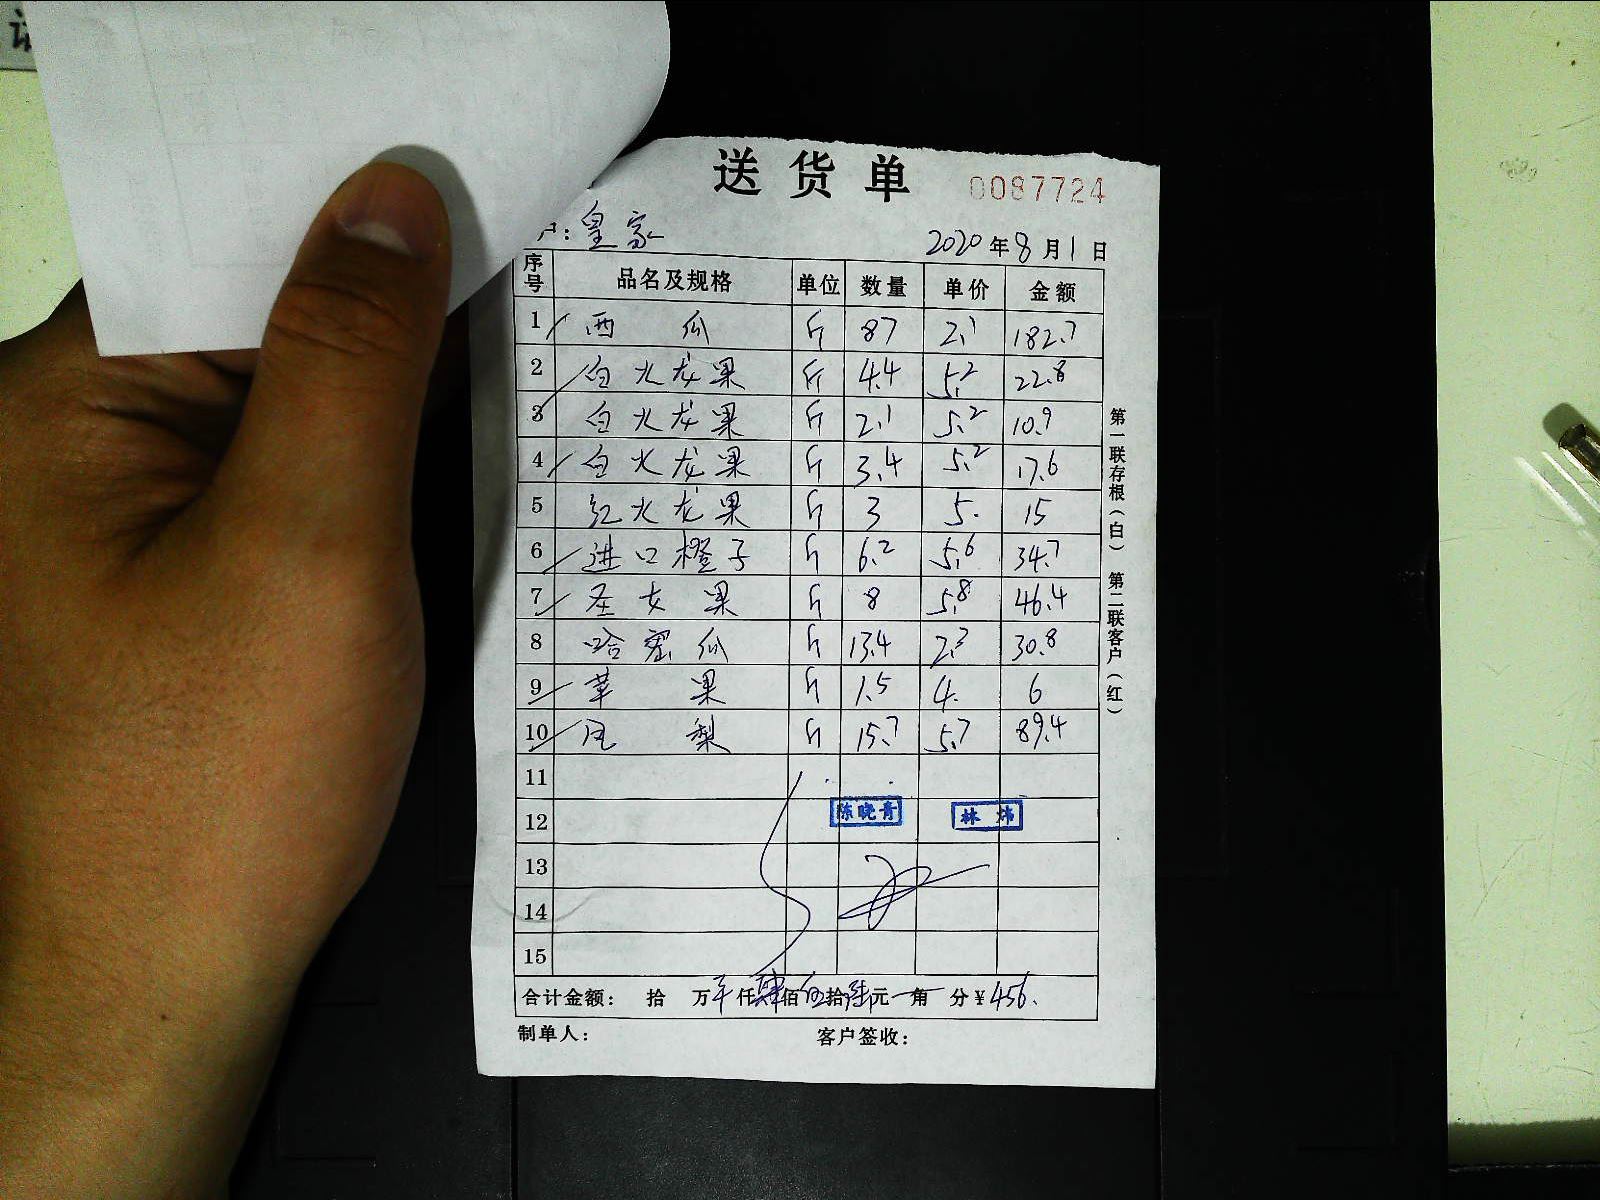 送货单 0087724
户：皇家 2020年8月1日
序号 品名及规格 单位 数量 单价 金额
1 西瓜 斤 87 2.1 182.7
2 白火龙果 斤 4.4 5.2 22.8
3 白火龙果 斤 2.1 5.2 10.9
4 白火龙果 斤 3.4 5.2 17.6
5 红火龙果 斤 3 5. 15
6 进口橙子 斤 6.2 5.6 34.7
7 圣女果 斤 8 5.8 46.4
8 哈密瓜 斤 13.4 2.3 30.8
9 苹果 斤 1.5 4. 6
10 凤梨 斤 15.7 5.7 89.4
11
12 陈晓青 林炜
13
14
15
合计金额： 拾 万 仟肆佰伍拾陆元 角 分￥456.
制单人： 客户签收：
第一联存根（白） 第二联客户（红）